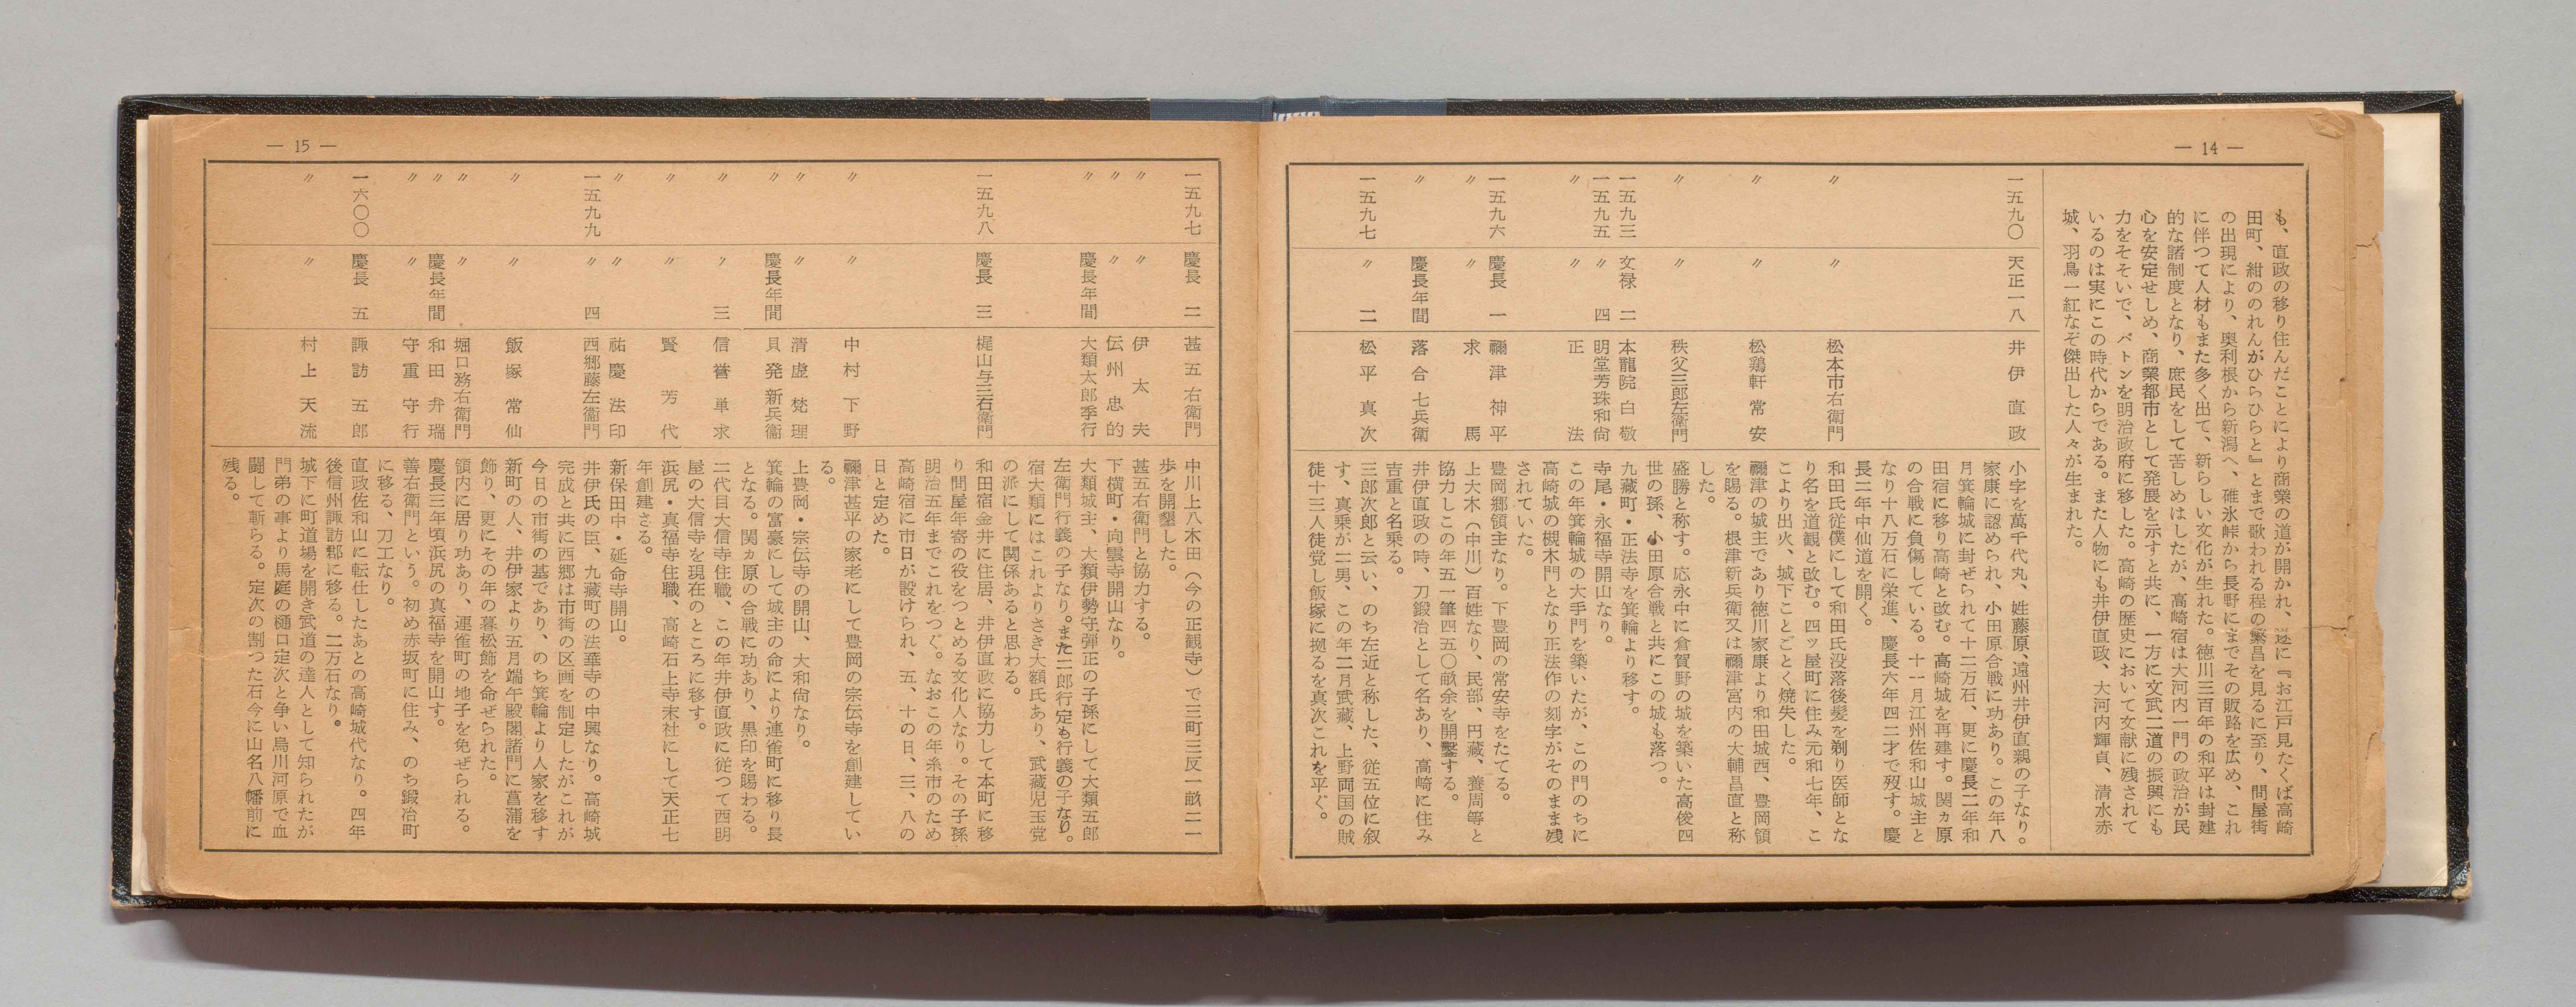 — 14 —
も、直政の移り住んだことにより商業の道が開かれ、遂に『お江戸見たくば高崎
田町、紺ののれんがひらひらと』とまで歌われる程の繁昌を見るに至り、問屋街
の出現により、奥利根から新潟へ、碓氷峠から長野にまでその販路を広め、これ
に伴つて人材もまた多く出て、新らしい文化が生れた。徳川三百年の和平は封建
的な諸制度となり、庶民をして苦しめはしたが、高崎宿は大河内一門の政治が民
心を安定せしめ、商業都市として発展を示すと共に、一方に文武二道の振興にも
力をそそいで、バトンを明治政府に移した。高崎の歴史において文献に残されて
いるのは実にこの時代からである。また人物にも井伊直政、大河内輝貞、清水赤
城、羽鳥一紅なぞ傑出した人々が生まれた。
一五九〇 天正一八 井伊直政 小字を萬千代丸、姓藤原、遠州井伊直親の子なり。
家康に認められ、小田原合戦に功あり。この年八
月箕輪城に封ぜられて十二万石、更に慶長二年和
田宿に移り高崎と改む。高崎城を再建す。関ヵ原
の合戦に負傷している。十一月江州佐和山城主と
なり十八万石に栄進、慶長六年四二才で歿す。慶
長二年中仙道を開く。
〃 〃 松本市右衛門 和田氏従僕にして和田氏没落後髪を剃り医師とな
り名を道観と改む。四ッ屋町に住み元和七年、こ
こより出火、城下ことごとく焼失した。
〃 〃 松鶏軒常安 禰津の城主であり徳川家康より和田城西、豊岡領
を賜る。根津新兵衛又は禰津宮内の大輔昌直と称
した。
〃 〃 秩父三郎左衛門 盛勝と称す。応永中に倉賀野の城を築いた高俊四
世の孫、小田原合戦と共にこの城も落つ。
一五九三 文禄二 本龍院白敬 九藏町・正法寺を箕輪より移す。
一五九五 〃四 明堂芳珠和尚 寺尾・永福寺開山なり。
〃 〃 正法 この年箕輪城の大手門を築いたが、この門のちに
高崎城の槻木門となり正法作の刻字がそのまま残
されていた。
一五九六 慶長一 禰津神平 豊岡郷領主なり。下豊岡の常安寺をたてる。
〃 〃 求馬 上大木（中川）百姓なり、民部、円藏、養周等と
協力しこの年五一筆四五〇畝余を開鑿する。
〃 慶長年間 落合七兵衛 井伊直政の時、刀鍛冶として名あり、高崎に住み
吉重と名乗る。
一五九七 〃二 松平真次 三郎次郎と云い、のち左近と称した、従五位に叙
す、真乗が二男、この年二月武藏、上野両国の賊
徒十三人徒党し飯塚に拠るを真次これを平ぐ。
— 15 —
一五九七 慶長二 甚五右衛門 中川上八木田（今の正観寺）で三町三反一畝二一
歩を開墾した。
〃 〃 伊太夫 甚五右衛門と協力する。
〃 〃 伝州忠的 下横町・向雲寺開山なり。
〃 慶長年間 大類太郎季行 大類城主、大類伊勢守弾正の子孫にして大類五郎
左衛門行義の子なり。また二郎行定も行義の子なり。
宿大類にはこれよりさき大額氏あり、武藏児玉党
の派にして関係あると思わる。
一五九八 慶長三 梶山与三右衛門 和田宿金井に住居、井伊直政に協力して本町に移
り問屋年寄の役をつとめる文化人なり。その子孫
明治五年までこれをつぐ。なおこの年糸市のため
高崎宿に市日が設けられ、五、十の日、三、八の
日と定めた。
〃 〃 中村下野 禰津甚平の家老にして豊岡の宗伝寺を創建してい
る。
〃 〃 清虚梵理 上豊岡・宗伝寺の開山、大和尚なり。
〃 慶長年間 貝発新兵衛 箕輪の富豪にして城主の命により連雀町に移り長
となる。関ヵ原の合戦に功あり、黒印を賜わる。
〃 〃三 信誉単求 二代目大信寺住職、この年井伊直政に従つて西明
屋の大信寺を現在のところに移す。
〃 〃 賢芳代 浜尻・真福寺住職、高崎石上寺末社にして天正七
年創建さる。
〃 〃 祐慶法印 新保田中・延命寺開山。
一五九九 〃四 西郷藤左衛門 井伊氏の臣、九藏町の法華寺の中興なり。高崎城
完成と共に西郷は市街の区画を制定したがこれが
今日の市街の基であり、のち箕輪より人家を移す
〃 〃 飯塚常仙 新町の人、井伊家より五月端午殿閣諸門に菖蒲を
飾り、更にその年の暮松飾を命ぜられた。
〃 〃 堀口務右衛門 領内に居り功あり、連雀町の地子を免ぜられる。
〃 慶長年間 和田弁瑞 慶長三年頃浜尻の真福寺を開山す。
〃 〃 守重守行 善右衛門という。初め赤坂町に住み、のち鍛冶町
に移る、刀工なり。
一六〇〇 慶長五 諏訪五郎 直政佐和山に転住したあとの高崎城代なり。四年
後信州諏訪郡に移る。二万石なり。
〃 〃 村上天流 城下に町道場を開き武道の達人として知られたが
門弟の事より馬庭の樋口定次と争い烏川河原で血
闘して斬らる。定次の割つた石今に山名八幡前に
残る。